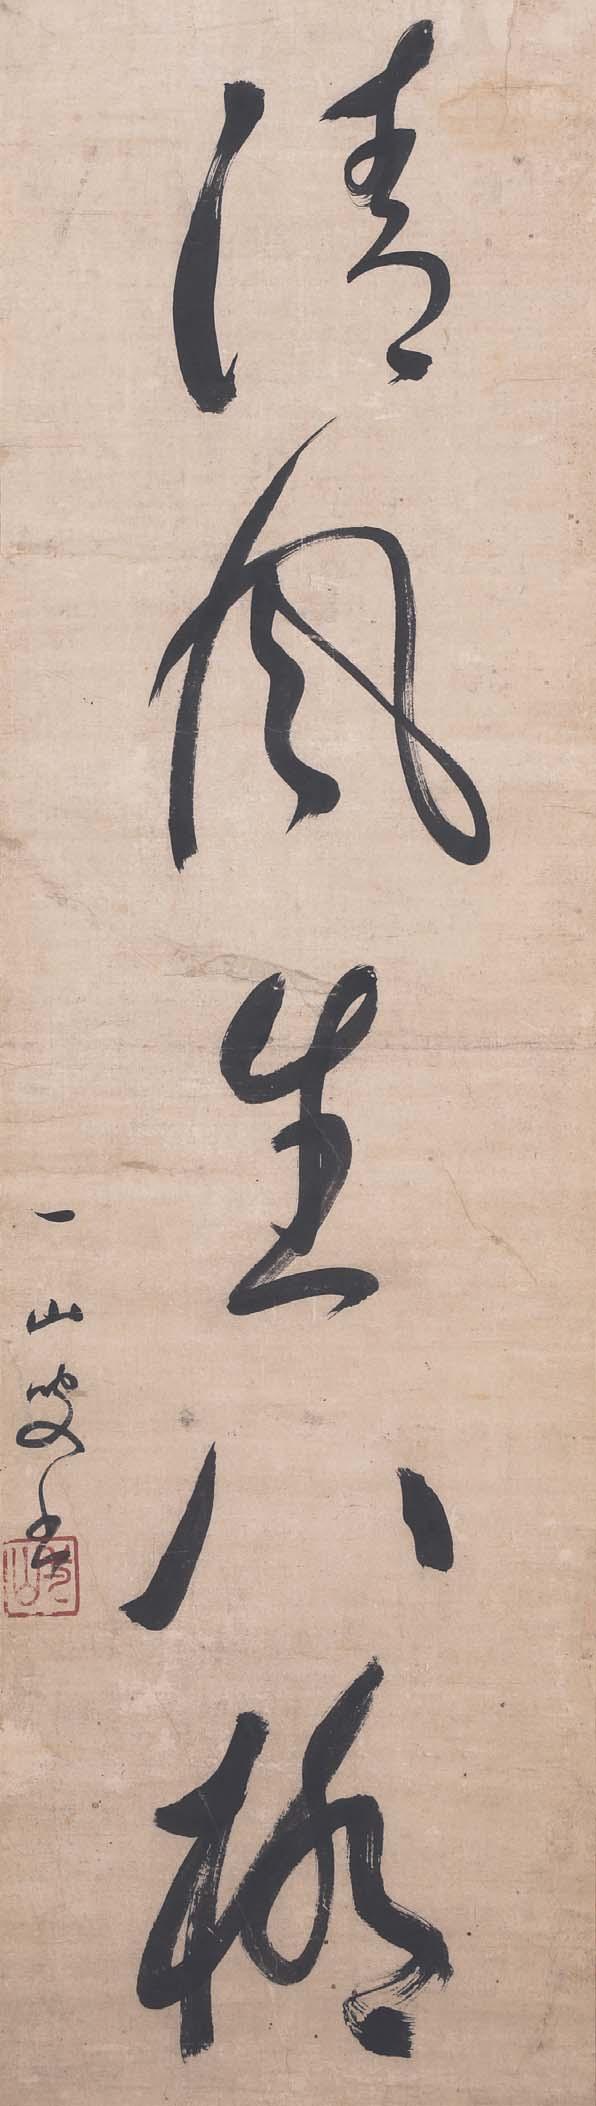 清風生八極
一山叟書